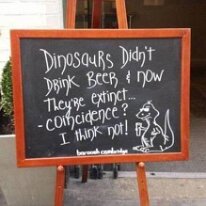 Dinosaurs Didn't
Drink Beer & now
They're extinct...
- coincidence?
I think not!